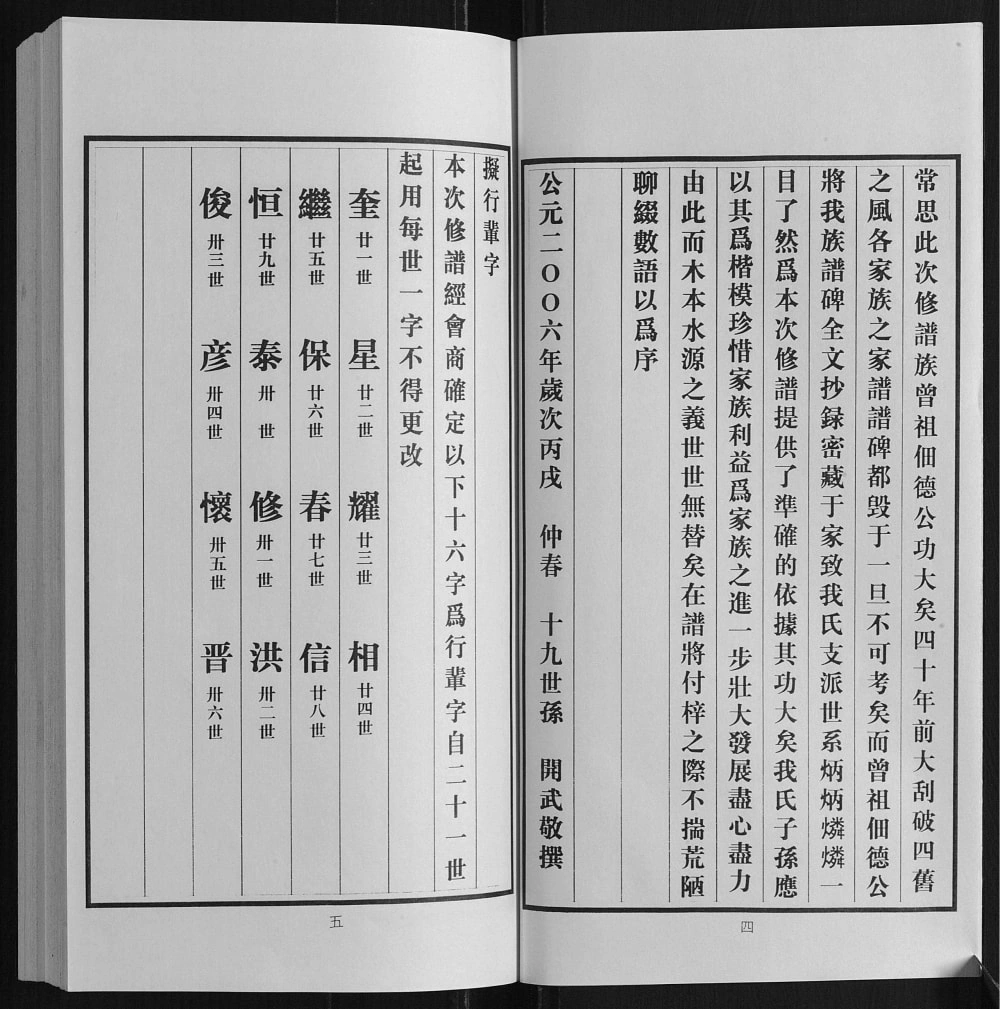 常思此次修譜族曾祖佃德公功大矣四十年前大刮破四舊
之風各家族之家譜譜碑都毁于一旦不可考矣而曾祖佃德公
將我族譜碑全文抄録密藏于家致我氏支派世系炳炳燐燐一
目了然爲本次修譜提供了準確的依據其功大矣我氏子孫應
以其爲楷模珍惜家族利益爲家族之進一步壯大發展盡心盡力
由此而木本水源之義世世無替矣在譜將付梓之際不揣荒陋
聊綴數語以爲序
公元二〇〇六年歲次丙戌　仲春　十九世孫　開武敬撰
四
擬行輩字
本次修譜經會商確定以下十六字爲行輩字自二十一世
起用每世一字不得更改
奎廿一世　星廿二世　耀廿三世　相廿四世
繼廿五世　保廿六世　春廿七世　信廿八世
恒廿九世　泰卅　世　修卅一世　洪卅二世
俊卅三世　彦卅四世　懷卅五世　晋卅六世
五